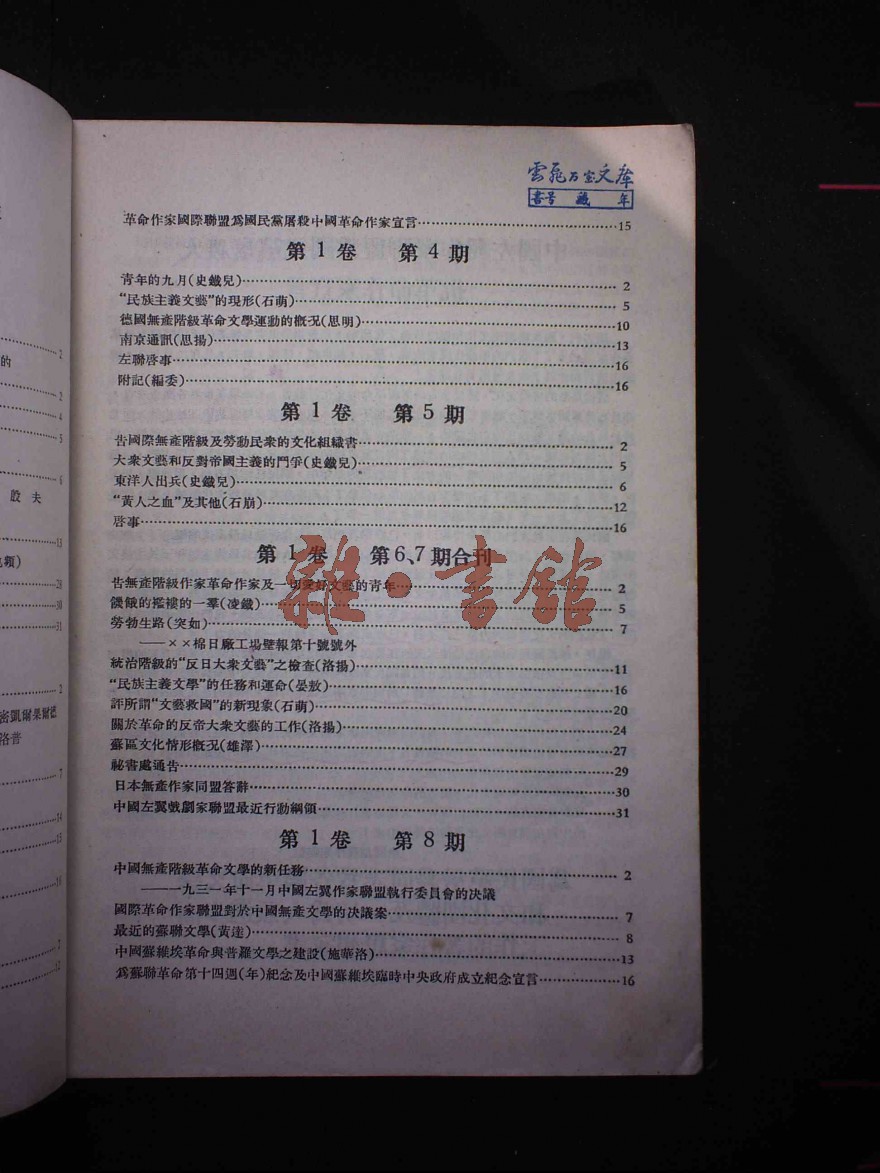 雲飛万宝文庫
書号 藏 年
革命作家國際聯盟爲國民黨屠殺中國革命作家宣言 15
第1卷 第4期
青年的九月(史鐵兒) 2
“民族主義文藝”的現形(石萌) 5
德國無產階級革命文學運動的概况(思明) 10
南京通訊(思揚) 13
左聯啓事 16
附記(編委) 16
第1卷 第5期
告國際無產階級及勞動民衆的文化組織書 2
大衆文藝和反對帝國主義的鬥爭(史鐵兒) 5
東洋人出兵(史鐵兒) 6
“黃人之血”及其他(石崩) 12
啓事 16
第1卷 第6、7期合刊
告無產階級作家革命作家及一切愛好文藝的青年 2
饑餓的襤褸的一羣(凌鐵) 5
勞勃生路(突如) 7
——××棉日廠工場壁報第十號號外
統治階級的“反日大衆文藝”之檢查(洛揚) 11
“民族主義文學”的任務和運命(晏敖) 16
評所謂“文藝救國”的新現象(石萌) 20
關於革命的反帝大衆文藝的工作(洛揚) 24
蘇區文化情形概况(雄澤) 27
祕書處通告 29
日本無產作家同盟答辭 30
中國左翼戲劇家聯盟最近行動綱領 31
第1卷 第8期
中國無產階級革命文學的新任務 2
——一九三一年十一月中國左翼作家聯盟執行委員會的决議
國際革命作家聯盟對於中國無產文學的决議案 7
最近的蘇聯文學(黃達) 8
中國蘇維埃革命與普羅文學之建設(施華洛) 13
爲蘇聯革命第十四週(年)紀念及中國蘇維埃臨時中央政府成立紀念宣言 16
雜·書館
2
的
2
4
5
6
殷 夫
13
28
30
31
2
密凱爾果爾德
洛普
7
14
15
16
7
17